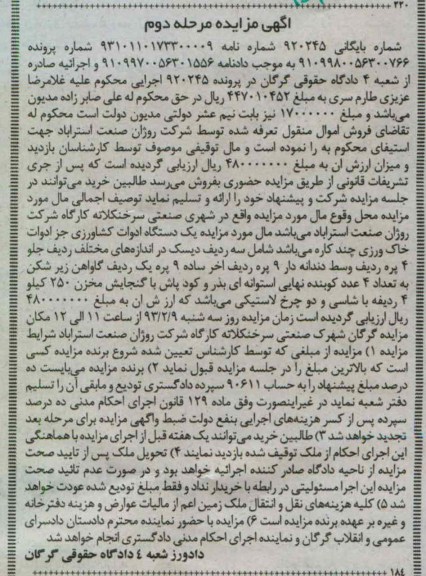 ۲۲۰
آگهی مزایده مرحله دوم
شماره بایگانی ۹۲۰۲۴۵ شماره نامه ۹۳۱۰۱۱۰۱۷۳۳۰۰۰۰۹ شماره پرونده
۹۱۰۹۹۸۰۰۵۶۳۰۰۷۶۶ به موجب دادنامه ۹۱۰۹۹۷۰۰۵۶۳۰۱۵۵۶ و اجرائیه صادره
از شعبه ۴ دادگاه حقوقی گرگان در پرونده ۹۲۰۲۴۵ اجرایی محکوم علیه غلامرضا
عزیزی طارم سری به مبلغ ۴۴۷۰۱۰۴۵۲ ریال در حق محکوم له علی صابر زاده مدیون
می‌باشد و مبلغ ۱۷۰۰۰۰۰۰ نیز بابت نیم عشر دولتی مدیون دولت است محکوم له
تقاضای فروش اموال منقول تعرفه شده توسط شرکت روژان صنعت استرآباد جهت
استیفای محکوم به را نموده است و مال توقیفی موصوف توسط کارشناسان بازدید
و میزان ارزش ان به مبلغ ۴۸۰۰۰۰۰۰۰ ریال ارزیابی گردیده است که پس از جری
تشریفات قانونی از طریق مزایده حضوری بفروش می‌رسد طالبین خرید می‌توانند در
جلسه مزایده شرکت و پیشنهاد خود را ارائه و تسلیم نماید توصیف اجمالی مال مورد
مزایده محل وقوع مال مورد مزایده واقع در شهری صنعتی سرخنکلاته کارگاه شرکت
روژان صنعت استراباد می‌باشد مال مورد مزایده یک دستگاه ادوات کشاورزی جز ادوات
خاک ورزی چند کاره می‌باشد شامل سه ردیف دیسک در اندازه‌های مختلف ردیف جلو
۴ پره ردیف وسط دندانه دار ۹ پره ردیف اخر ساده ۹ پره یک ردیف گاواهن زیر شکن
به تعداد ۴ عدد کوبنده نهایی استوانه ای بذر و کود پاش با گنجایش مخزن ۲۵۰ کیلو
۴ ردیفه با شاسی و دو چرخ لاستیکی می‌باشد که ارز ش ان به مبلغ ۴۸۰۰۰۰۰۰۰
ریال ارزیابی گردیده است زمان مزایده روز سه شنبه ۹۳/۲/۹ از ساعت ۱۱ الی ۱۲ مکان
مزایده گرگان شهرک صنعتی سرخنکلاته کارگاه شرکت روژان صنعت استراباد شرایط
مزایده ۱) مزایده از مبلغی که توسط کارشناس تعیین شده شروع برنده مزایده کسی
است که بالاترین مبلغ را در جلسه مزایده قبول نماید ۲) برنده مزایده می‌بایست ده
درصد مبلغ پیشنهاد را به حساب ۹۰۶۱۱ سپرده دادگستری تودیع و مابقی آن را تسلیم
دفتر شعبه نماید در غیراینصورت وفق ماده ۱۲۹ قانون اجرای احکام مدنی ده درصد
سپرده پس از کسر هزینه‌های اجرایی بنفع دولت ضبط واگهی مزایده برای مرحله بعد
تجدید خواهد شد ۳) طالبین خرید می‌توانند یک هفته قبل از اجرای مزایده با هماهنگی
این اجرای احکام از ملک توقیف شده بازدید نمایند ۴) تحویل ملک پس از تایید صحت
مزایده از ناحیه دادگاه صادر کننده اجرائیه خواهد بود و در صورت عدم تائید صحت
مزایده این اجرا مسئولیتی در رابطه با خریدار نداد و فقط مبلغ تودیع شده عودت خواهد
شد ۵) کلیه هزینه‌های نقل و انتقال ملک زمین اعم از مالیات عوارض و هزینه دفترخانه
و غیره بر عهده برنده مزایده است ۶) مزایده با حضور نماینده محترم دادستان دادسرای
عمومی و انقلاب گرگان و نماینده اجرای احکام مدنی دادگستری انجام خواهد شد
دادورز شعبه ۴ دادگاه حقوقی گرگان
۱۸۴